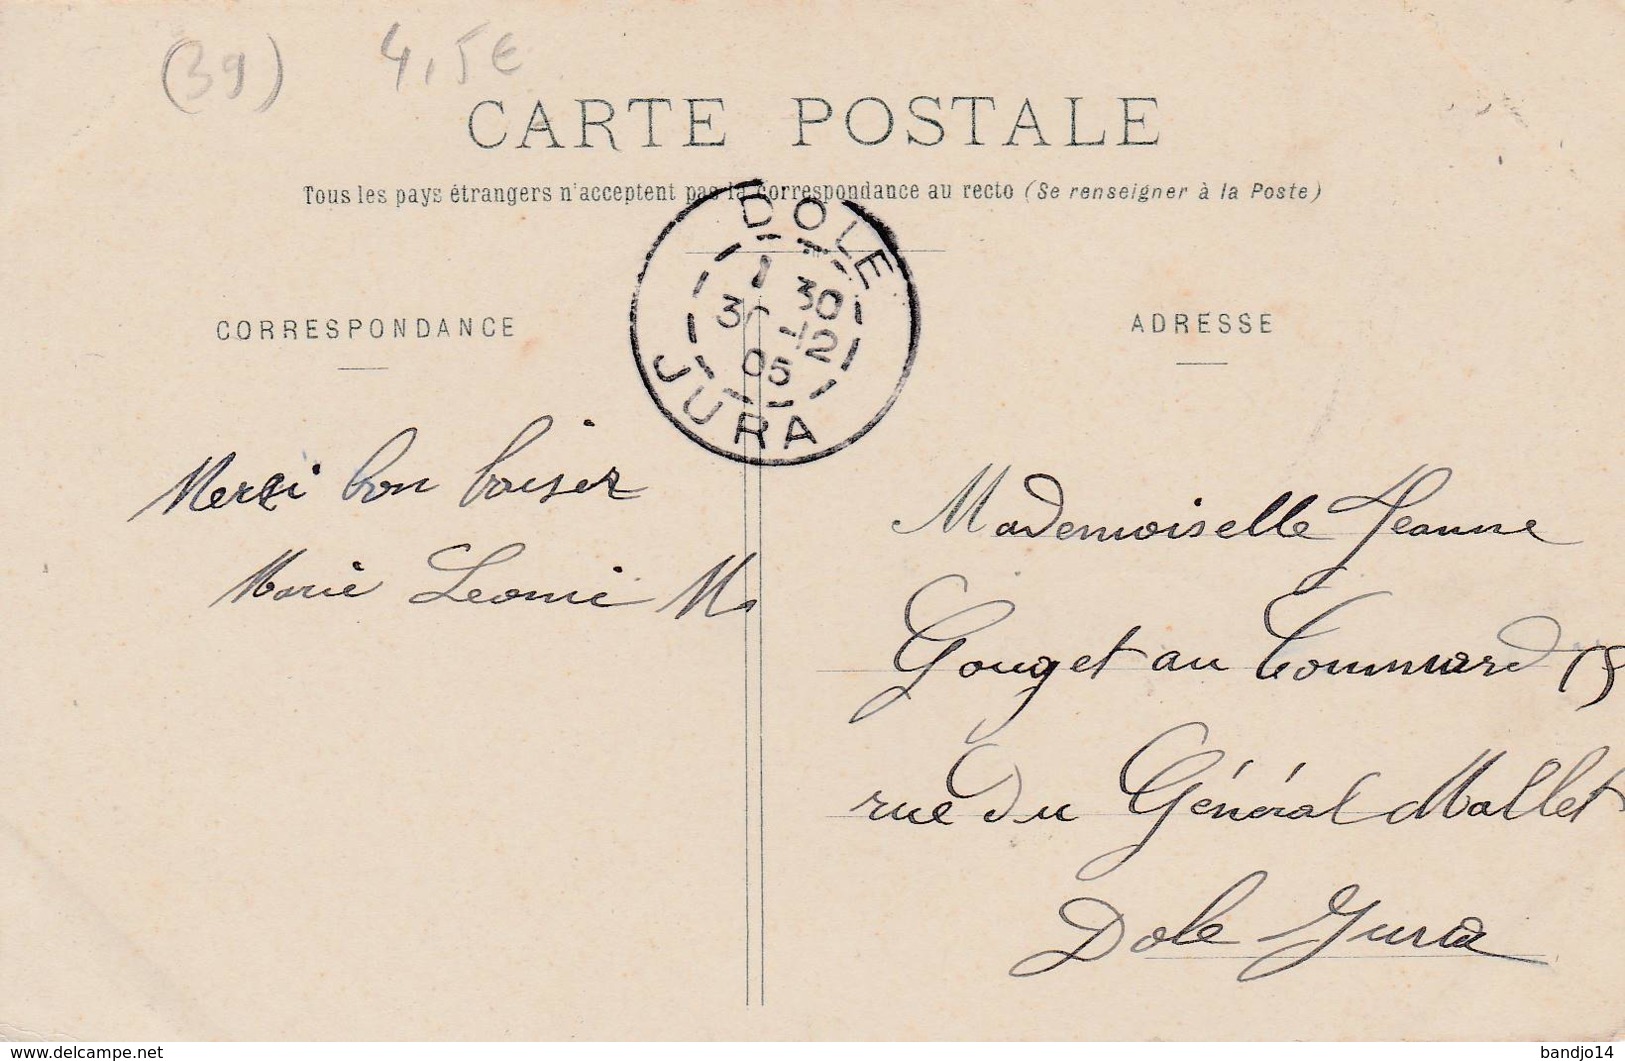 (39) 4,5€
CARTE POSTALE
Tous les pays étrangers n'acceptent pas la correspondance au recto (Se renseigner à la Poste)
DOLE
30
3
12
05
JURA
CORRESPONDANCE
ADRESSE
Mersi bon baiser
Marie Leonie M
Mademoiselle Jeanne
Gouget au
rue du Général Mallet
Dole Jura
www.delcampe.net
bandjo14